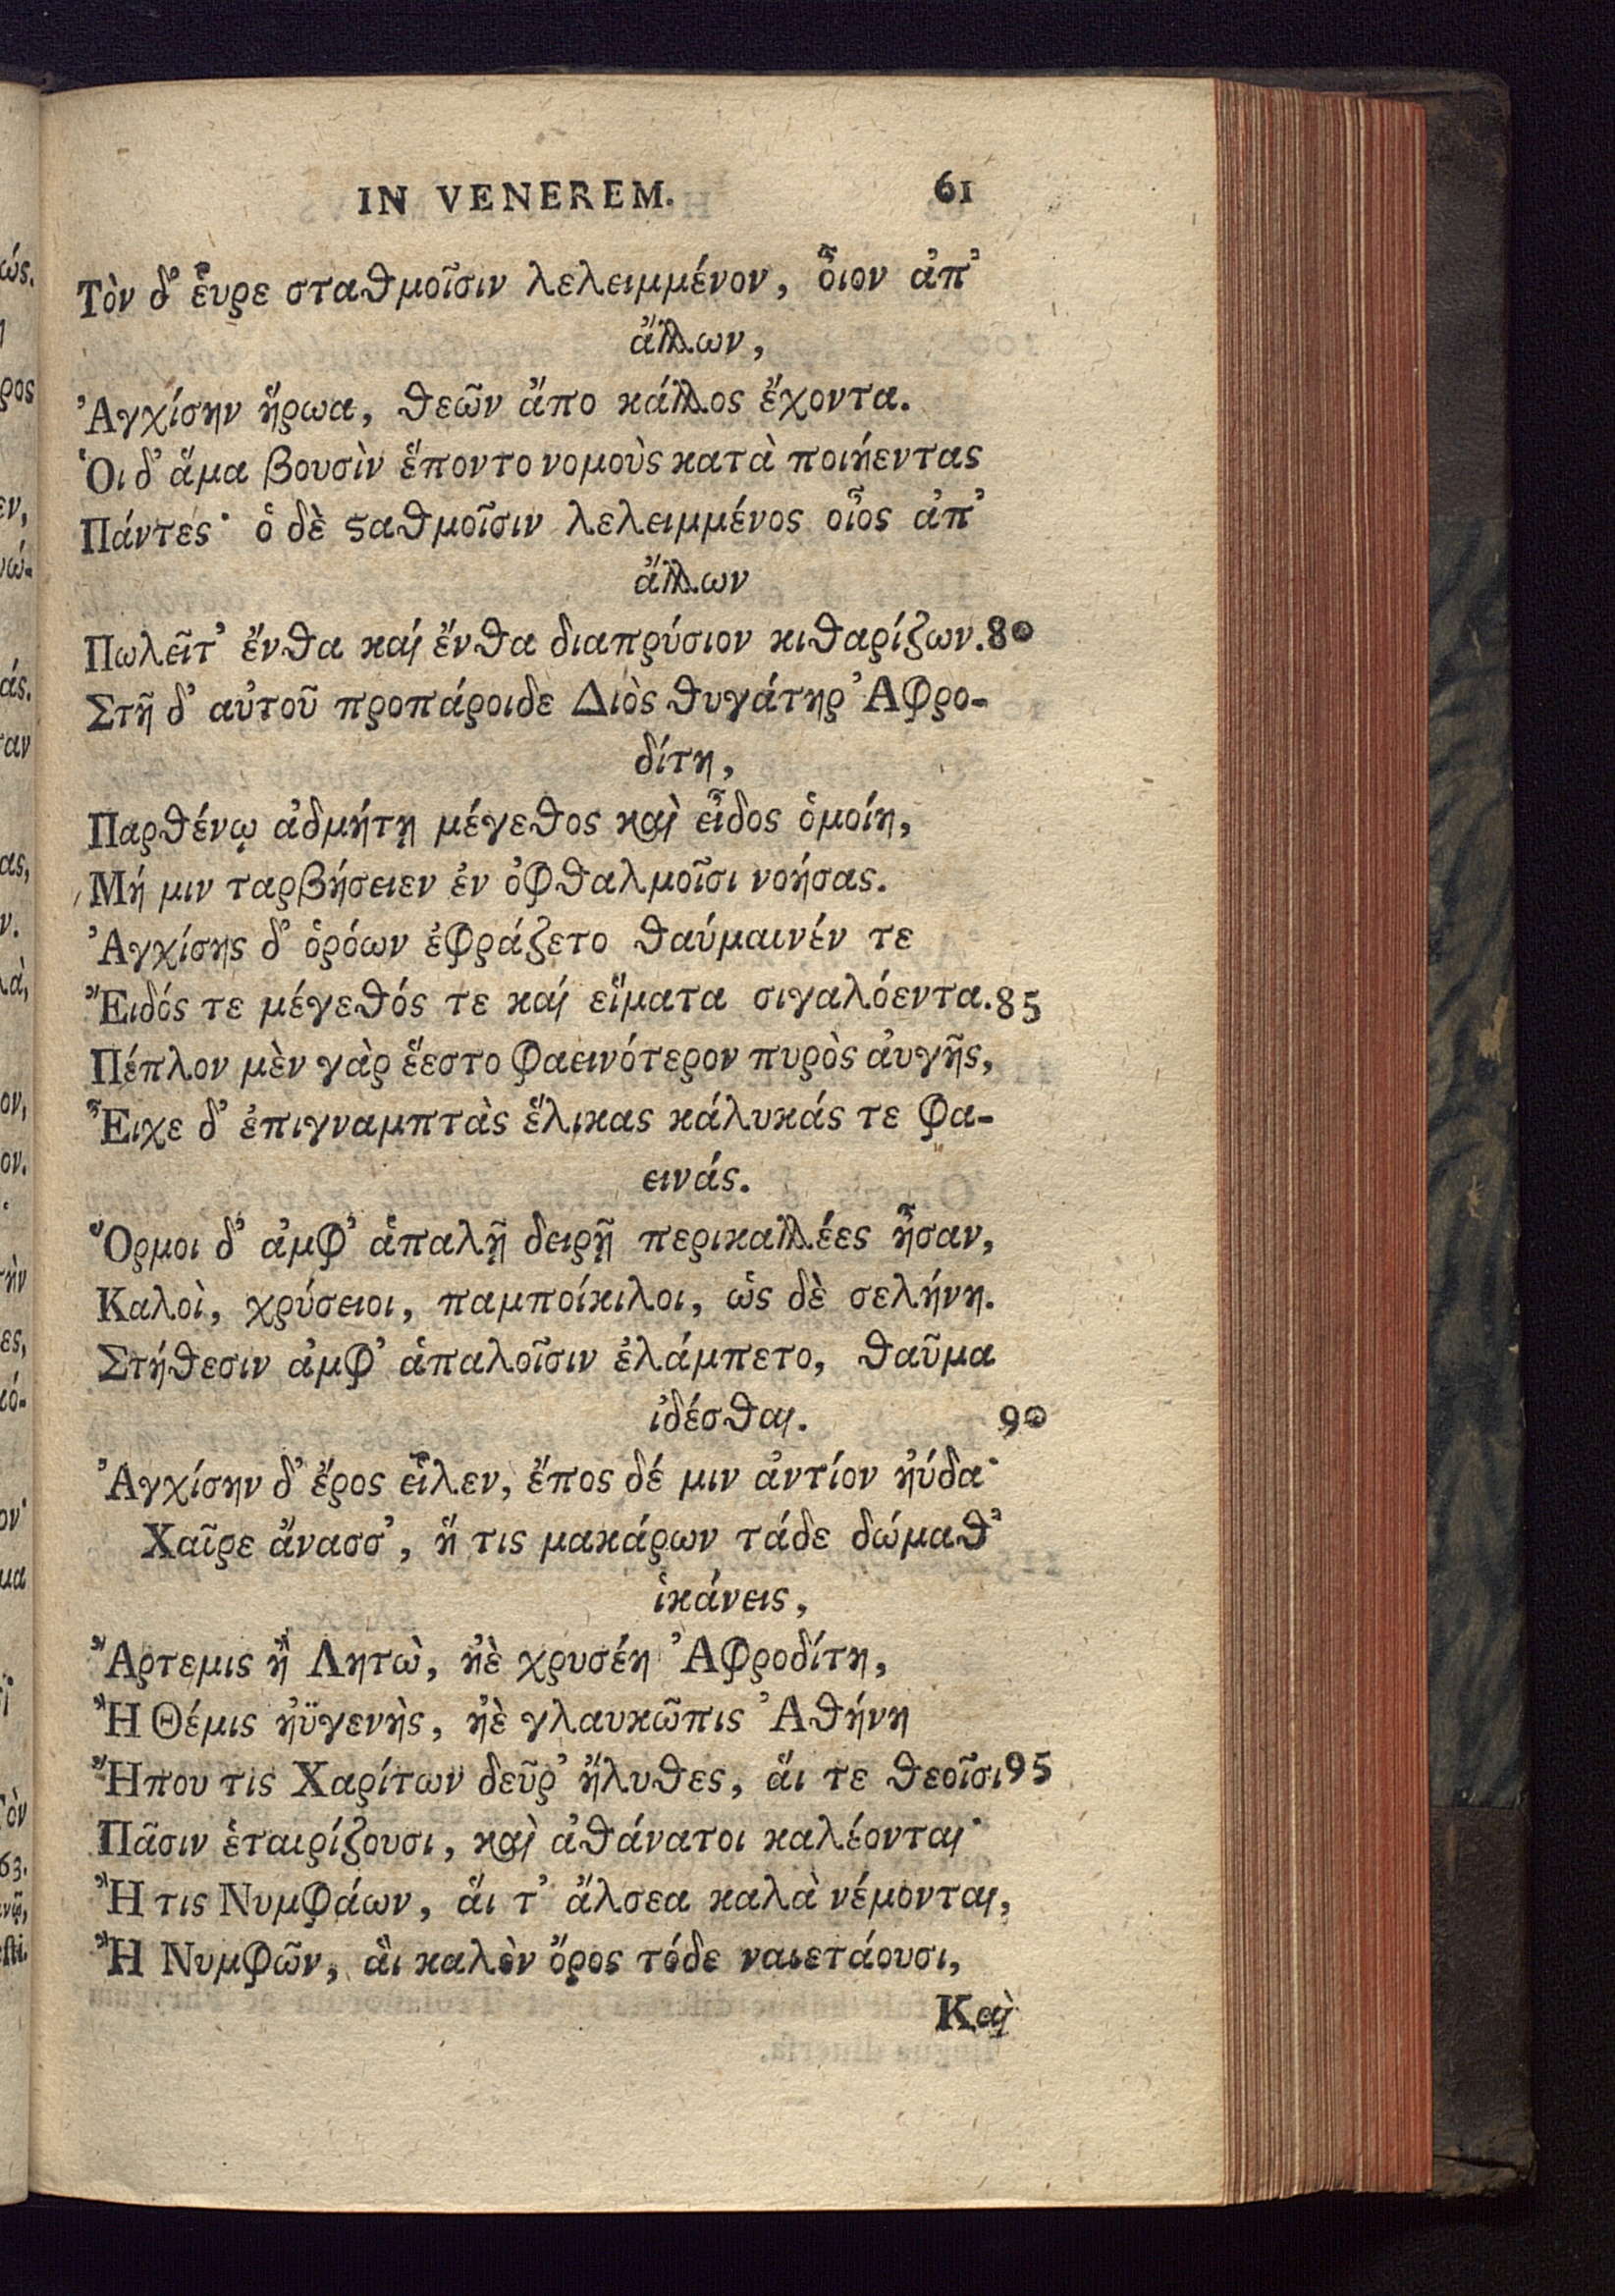 IN VENEREM. 61
Τὸν δ' ἓυρε σταθμοῖσιν λελειμμένον, ὃιον ἀπ'
ἄλλων,
Ἀγχίσην ἥρωα, θεῶν ἄπο κάλλος ἔχοντα.
Ὁι δ' ἅμα βουσὶν ἕποντο νομοὺς κατὰ ποιήεντας
Πάντες· ὁ δὲ ϛαθμοῖσιν λελειμμένος οἶος ἀπ'
ἄλλων
Πωλεῖτ' ἔνθα καί ἔνθα διαπρύσιον κιθαρίζων. 80
Στῆ δ' αὐτοῦ προπάροιδε Διὸς θυγάτηρ Ἀφρο-
δίτη,
Παρθένῳ ἀδμήτῃ μέγεθος καὶ εἶδος ὁμοίη,
Μή μιν ταρβήσειεν ἐν ὀφθαλμοῖσι νοήσας.
Ἀγχίσης δ' ὁρόων ἐφράζετο θαύμαινέν τε
Ἔιδός τε μέγεθός τε καί εἵματα σιγαλόεντα. 85
Πέπλον μὲν γὰρ ἕεστο φαεινότερον πυρὸς ἀυγῆς,
἖ιχε δ' ἐπιγναμπτὰς ἕλικας κάλυκάς τε φα-
εινάς.
Ὅρμοι δ' ἀμφ' ἁπαλῇ δειρῇ περικαλλέες ἦσαν,
Καλοὶ, χρύσειοι, παμποίκιλοι, ὡς δὲ σελήνη.
Στήθεσιν ἀμφ' ἁπαλοῖσιν ἐλάμπετο, θαῦμα
ἰδέσθαι. 90
Ἀγχίσην δ' ἔρος εἷλεν, ἔπος δέ μιν ἀντίον ἠύδα·
Χαῖρε ἄνασσ', ἥ τις μακάρων τάδε δώμαθ'
ἱκάνεις,
Ἄρτεμις ἢ Λητὼ, ἠὲ χρυσέη Ἀφροδίτη,
Ἢ Θέμις ἠϋγενὴς, ἠὲ γλαυκῶπις Ἀθήνη
Ἤπου τις Χαρίτων δεῦρ' ἤλυθες, ἅι τε θεοῖσι 95
Πᾶσιν ἑταιρίζουσι, καὶ ἀθάνατοι καλέονται·
Ἤ τις Νυμφάων, ἅι τ' ἄλσεα καλὰ νέμονται,
Ἢ Νυμφῶν, ἃι καλὸν ὄρος τόδε ναιετάουσι,
Καὶ